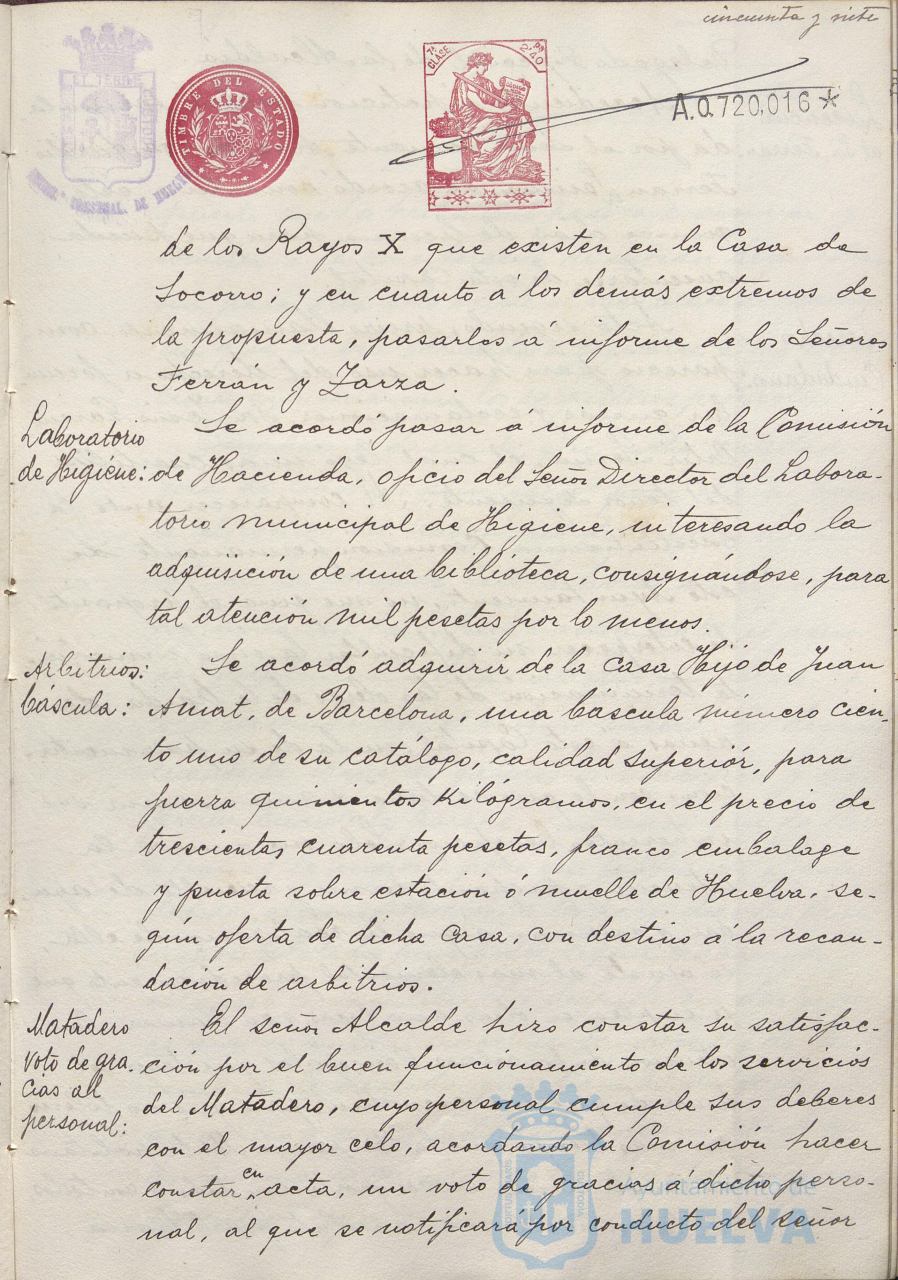 cincuenta y siete
TIMBRE DEL ESTADO
7ª CLASE
Pª 2'40
A.0.720,016 *
HUELVA
de los Rayos X que existen en la Casa de
Socorro; y en cuanto á los demás extremos de
la propuesta, pasarlos á informe de los Señores
Ferrán y Zarza.
Laboratorio
de Higiene:
Se acordó pasar á informe de la Comisión
de Hacienda, oficio del Señor Director del Labora-
torio municipal de Higiene, interesando la
adquisición de una biblioteca, consignándose, para
tal atención mil pesetas por lo menos.
Arbitrios:
báscula:
Se acordó adquirir de la casa Hijo de Juan
Amat, de Barcelona, una báscula número cien-
to uno de su catálogo, calidad superiór, para
fuerza quinientos Kilógramos, en el precio de
trescientas cuarenta pesetas, franco embalage
y puesta sobre estación ó muelle de Huelva, se-
gún oferta de dicha casa, con destino á la recau-
dación de arbitrios.
Matadero
voto de gra-
cias al
personal:
El señor Alcalde hizo constar su satisfac-
ción por el buen funcionamiento de los servicios
del Matadero, cuyo personal cumple sus deberes
con el mayor celo, acordando la Comisión hacer
constar en acta, un voto de gracias á dicho perso-
nal, al que se notificará por conducto del señor
Ayuntamiento de
HUELVA